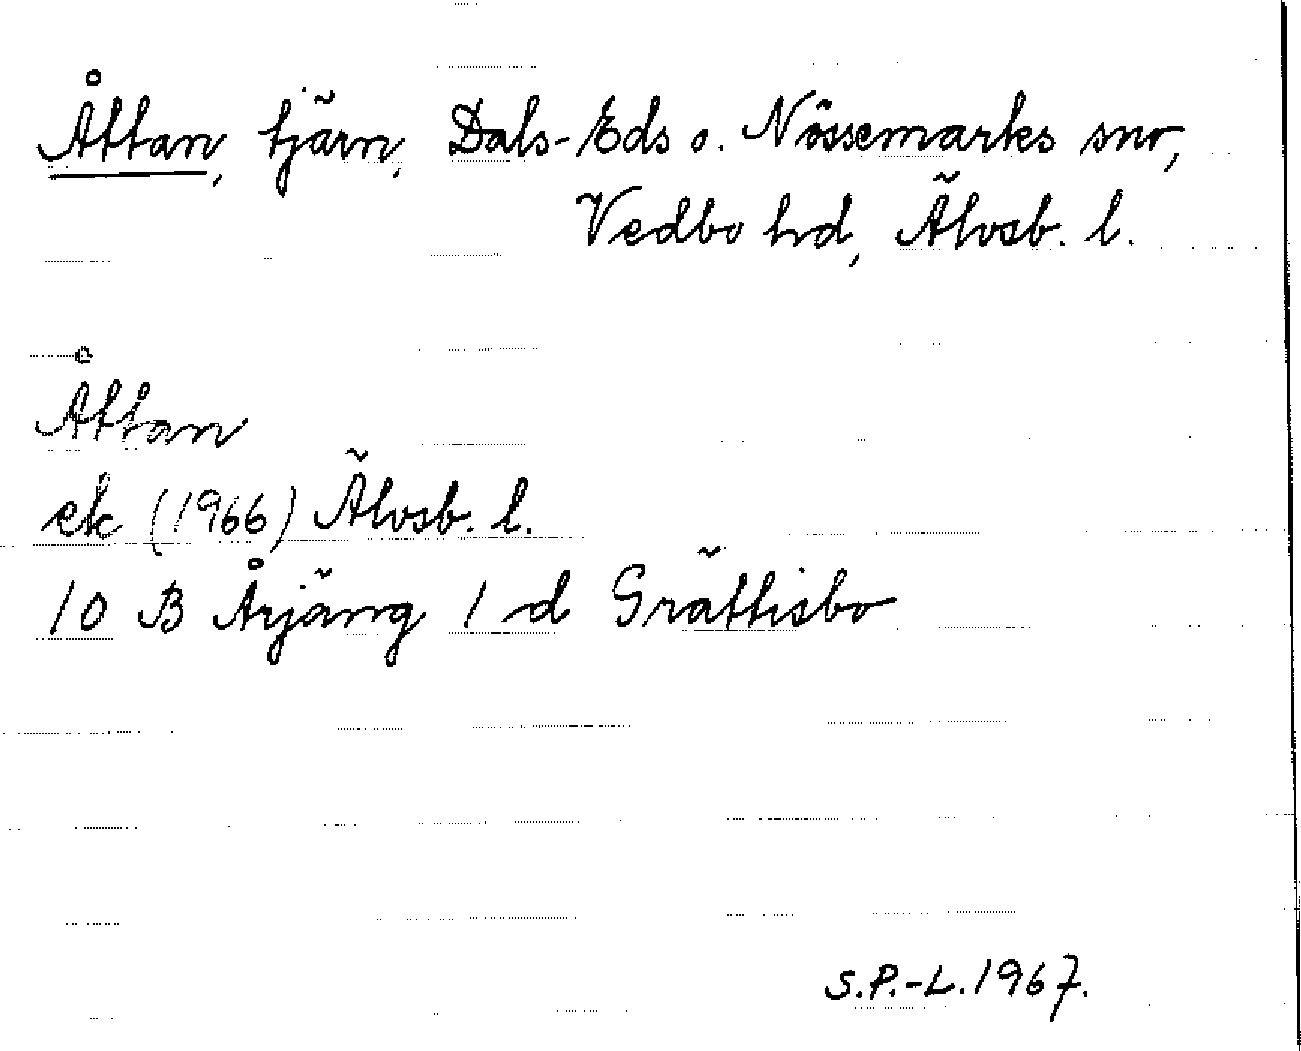 Åttan, tjärn, Dals-Eds o. Nössemarks snr,
Vedbo hd, Älvsb. l.
Åttan
ek (1966) Älvsb. l.
10 B Årjäng 1 d Grättisbo
S.P.-L. 1967.